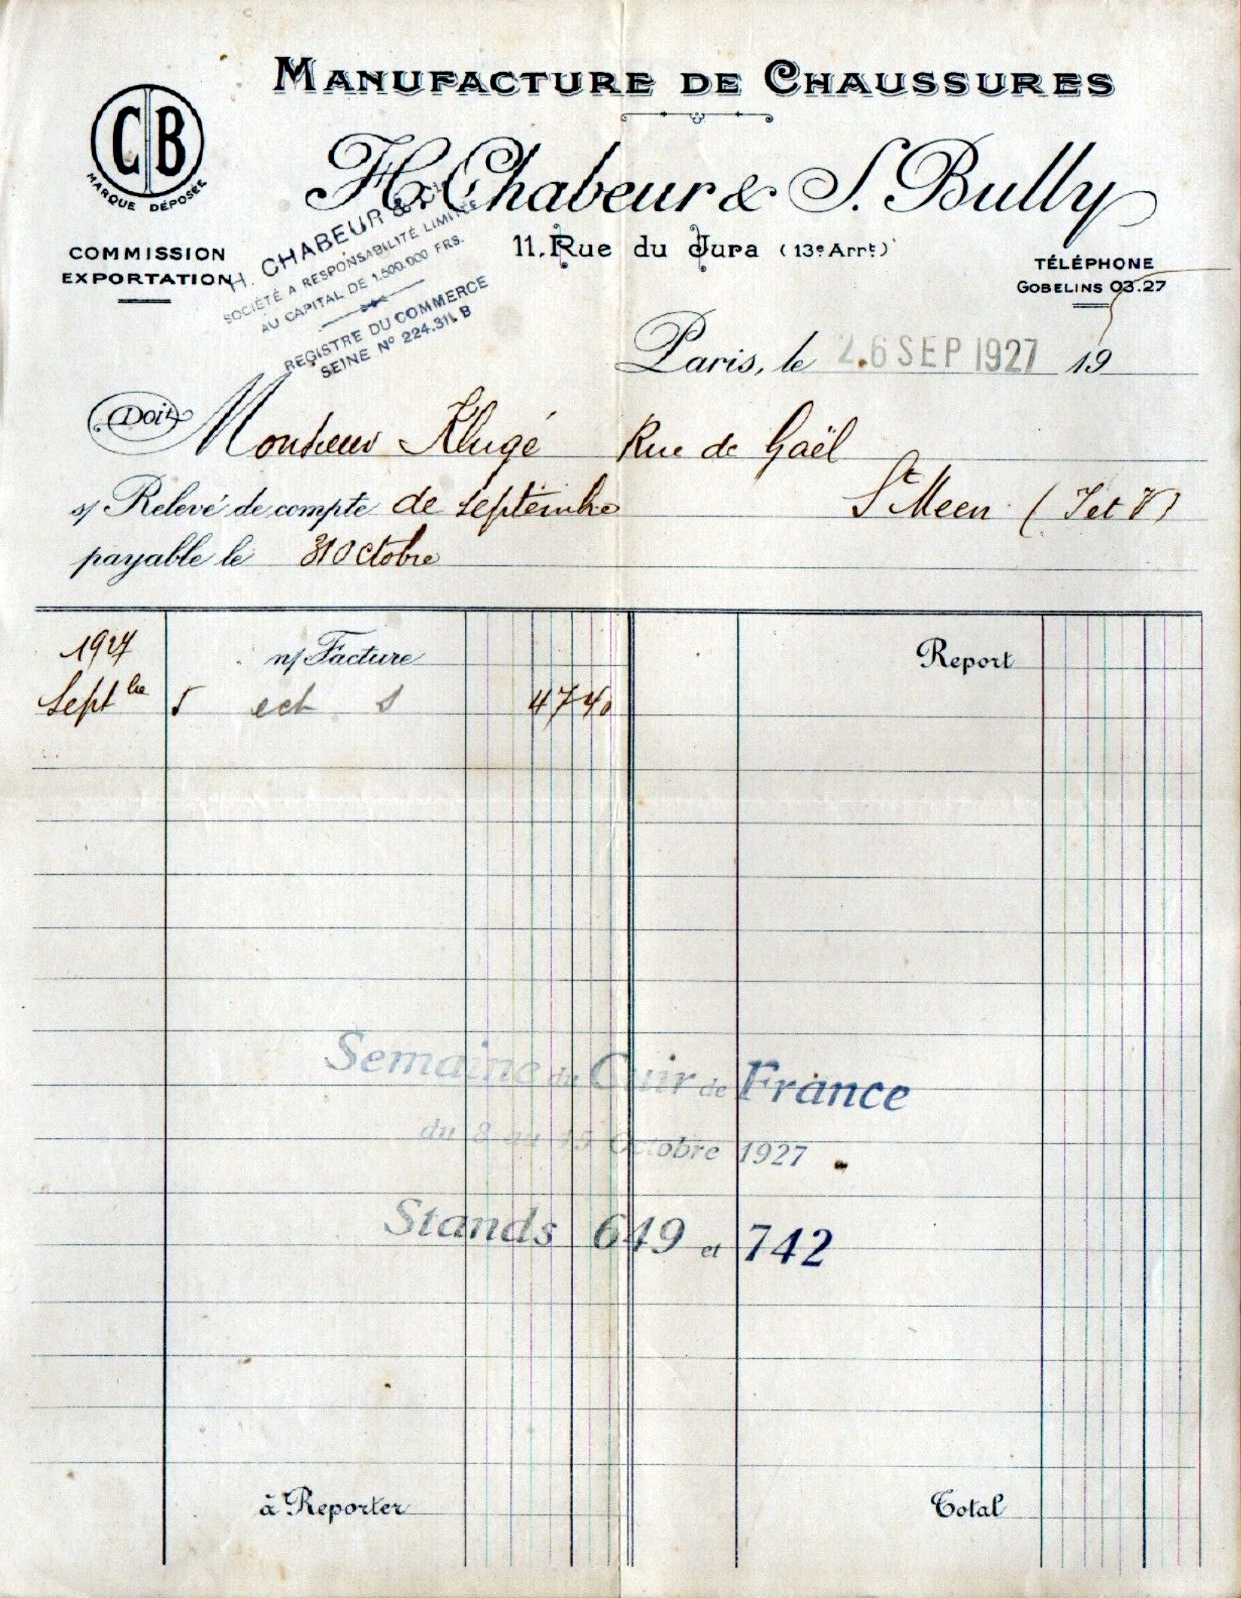 MANUFACTURE DE CHAUSSURES
CB
MARQUE DÉPOSÉE
H. Chabeur & S. Bully
11, Rue du Jura (13e Arrt)
COMMISSION
EXPORTATION
TÉLÉPHONE
GOBELINS 03.27
H. CHABEUR & Cie
SOCIÉTÉ A RESPONSABILITÉ LIMITÉE
AU CAPITAL DE 1.500.000 FRS.
REGISTRE DU COMMERCE
SEINE N° 224.311 B
Paris, le 26 SEP 1927 19
Doit Monsieur Klugé Rue de Gaël
s/ Relevé de compte de septembre St Meen (I et V)
payable le 31 Octobre
1927 n/ Facture Report
Septbre 5 ect s 47 40
Semaine du Cuir de France
du 8 au 15 Octobre 1927
Stands 649 et 742
à Reporter Total